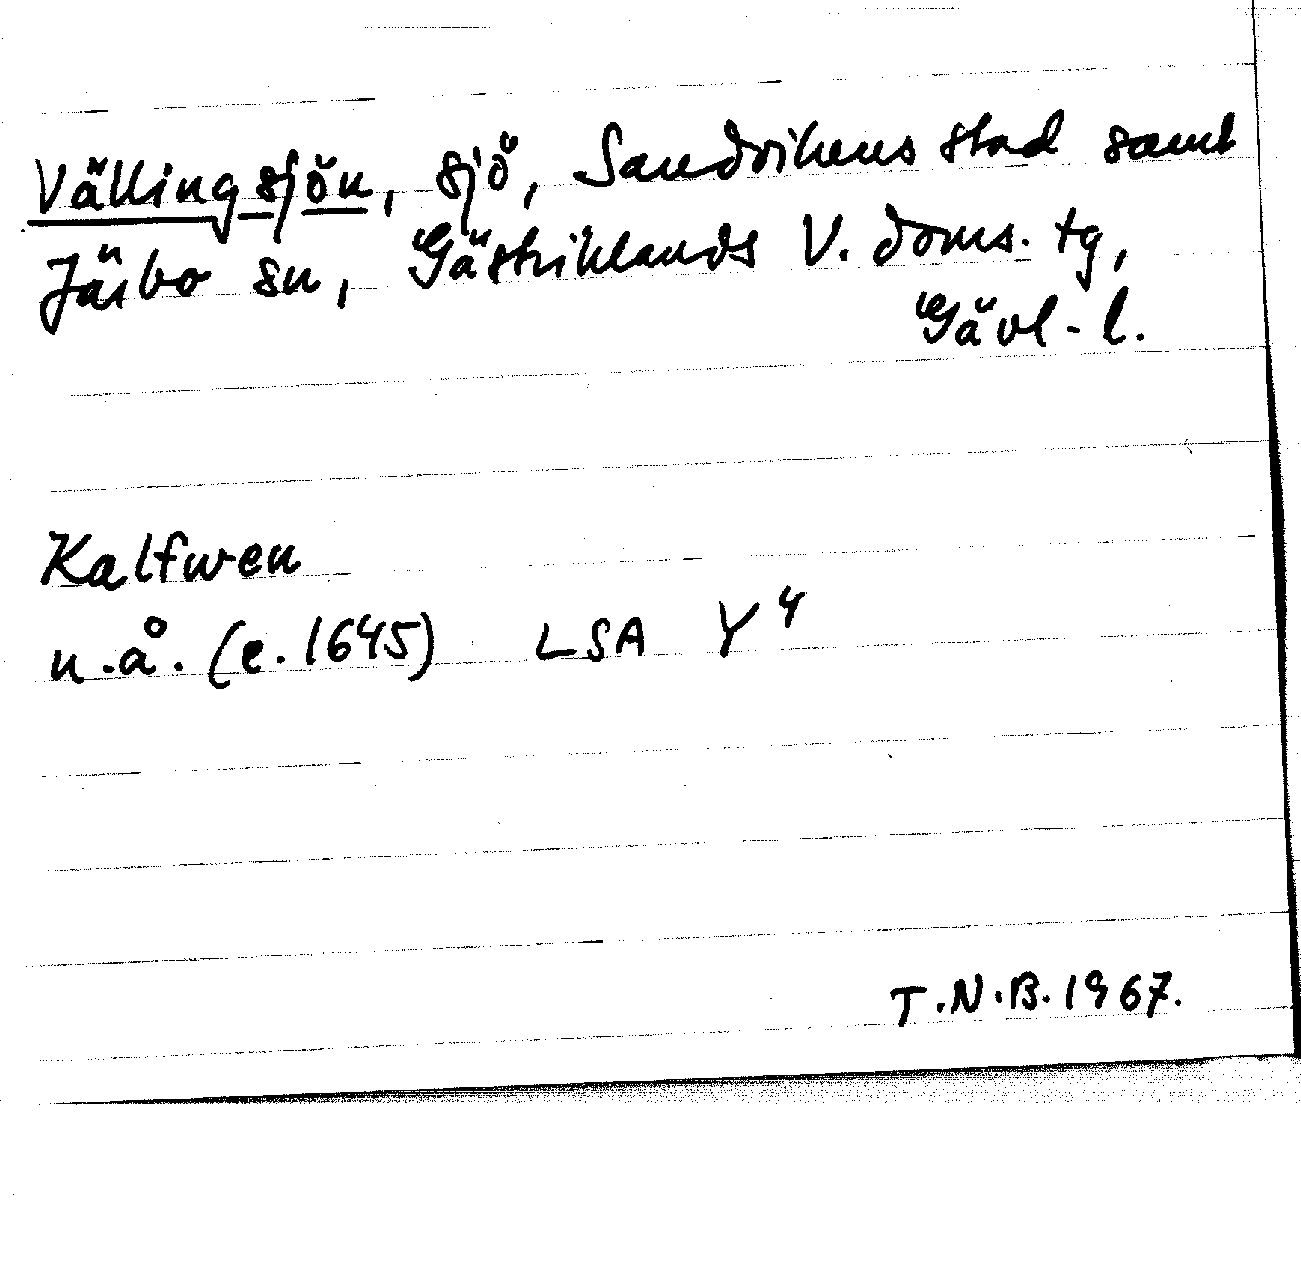 Vällingsjön, sjö, Sandvikens stad samt
Järbo sn, Gästriklands V. doms. tg,
Gävl-l.
Kalfwen
n.å. (e. 1645) LSA Y4
T.N.B. 1967.